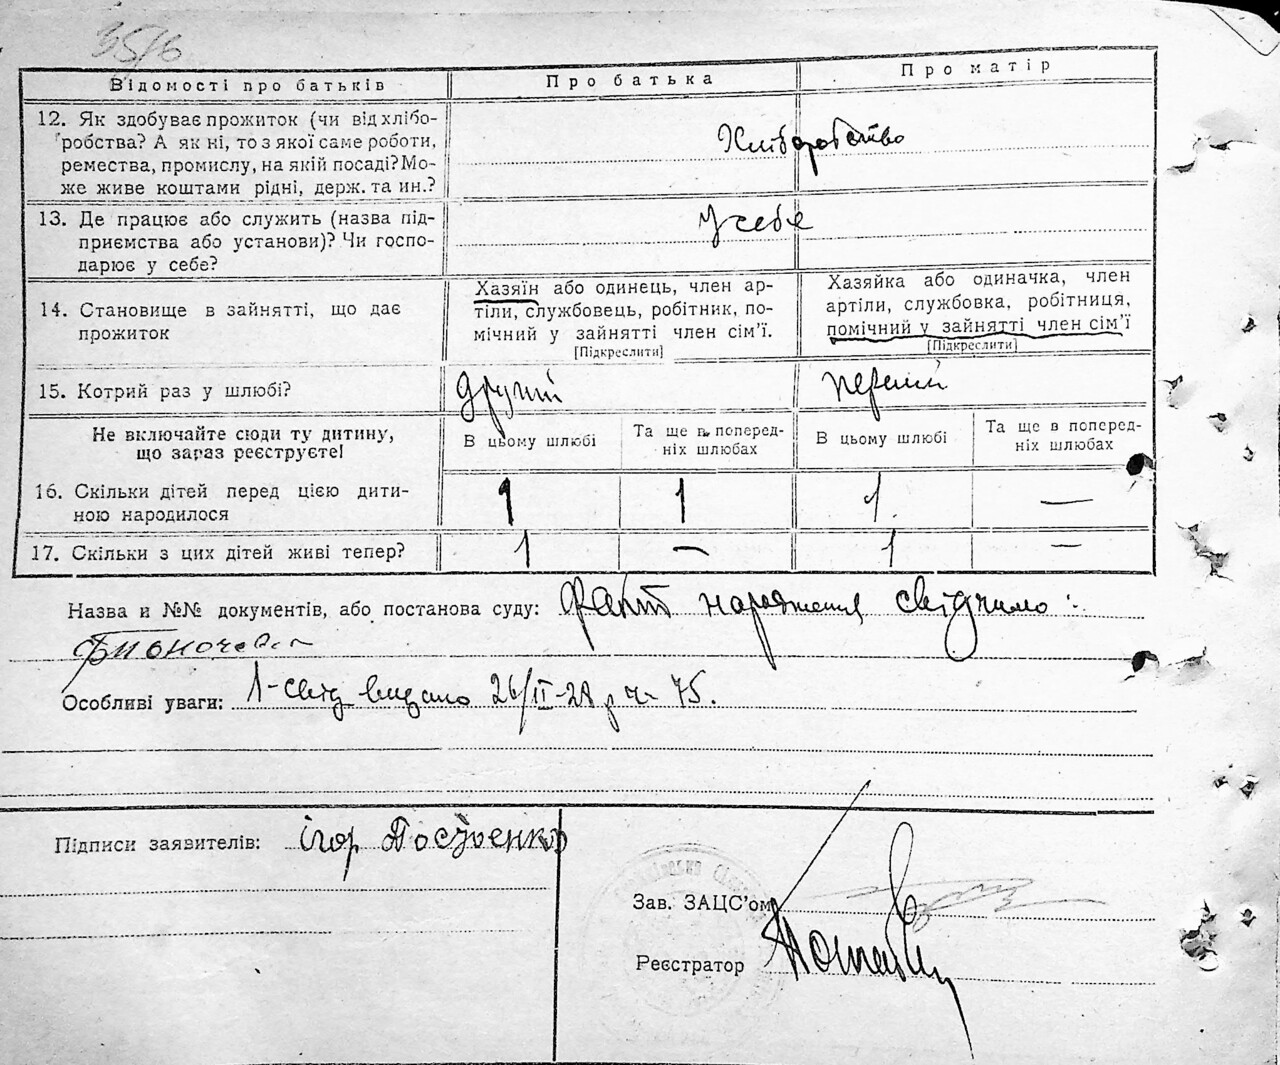 35/6
Відомості про батьків
Про батька
Про матір
12. Як здобуває прожиток (чи від хлібо-
робства? А як ні, то з якої саме роботи,
ремества, промислу, на якій посаді? Мо-
же живе коштами рідні, держ. та ин.?
Хліборобство
13. Де працює або служить (назва під-
приємства або установи)? Чи госпо-
дарює у себе?
У себе
14. Становище в зайнятті, що дає
прожиток
Хазяїн або одинець, член ар-
тіли, службовець, робітник, по-
мічний у зайнятті член сім'ї.
[Підкреслити]
Хазяйка або одиначка, член
артіли, службовка, робітниця,
помічний у зайнятті член сім'ї
[Підкреслити]
15. Котрий раз у шлюбі?
другий
перший
Не включайте сюди ту дитину,
що зараз реєструєте!
В цьому шлюбі
Та ще в поперед-
ніх шлюбах
В цьому шлюбі
Та ще в поперед-
ніх шлюбах
16. Скільки дітей перед цією дити-
ною народилося
1
1
1
—
17. Скільки з цих дітей живі тепер?
1
—
1
—
Назва и №№ документів, або постанова суду: Факт народження свідчимо:
Особливі уваги: 1-свід видано 26/II-28 р ч- 75.
Підписи заявителів: Ігор
Зав. ЗАЦС'ом
Реєстратор